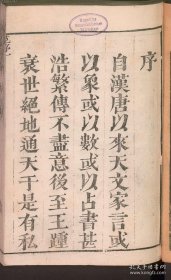 序
自漢唐以來天文家言或
以象或以數或以占書甚
浩繁傳不盡意後至王踵
衰世絕地通天于是有私